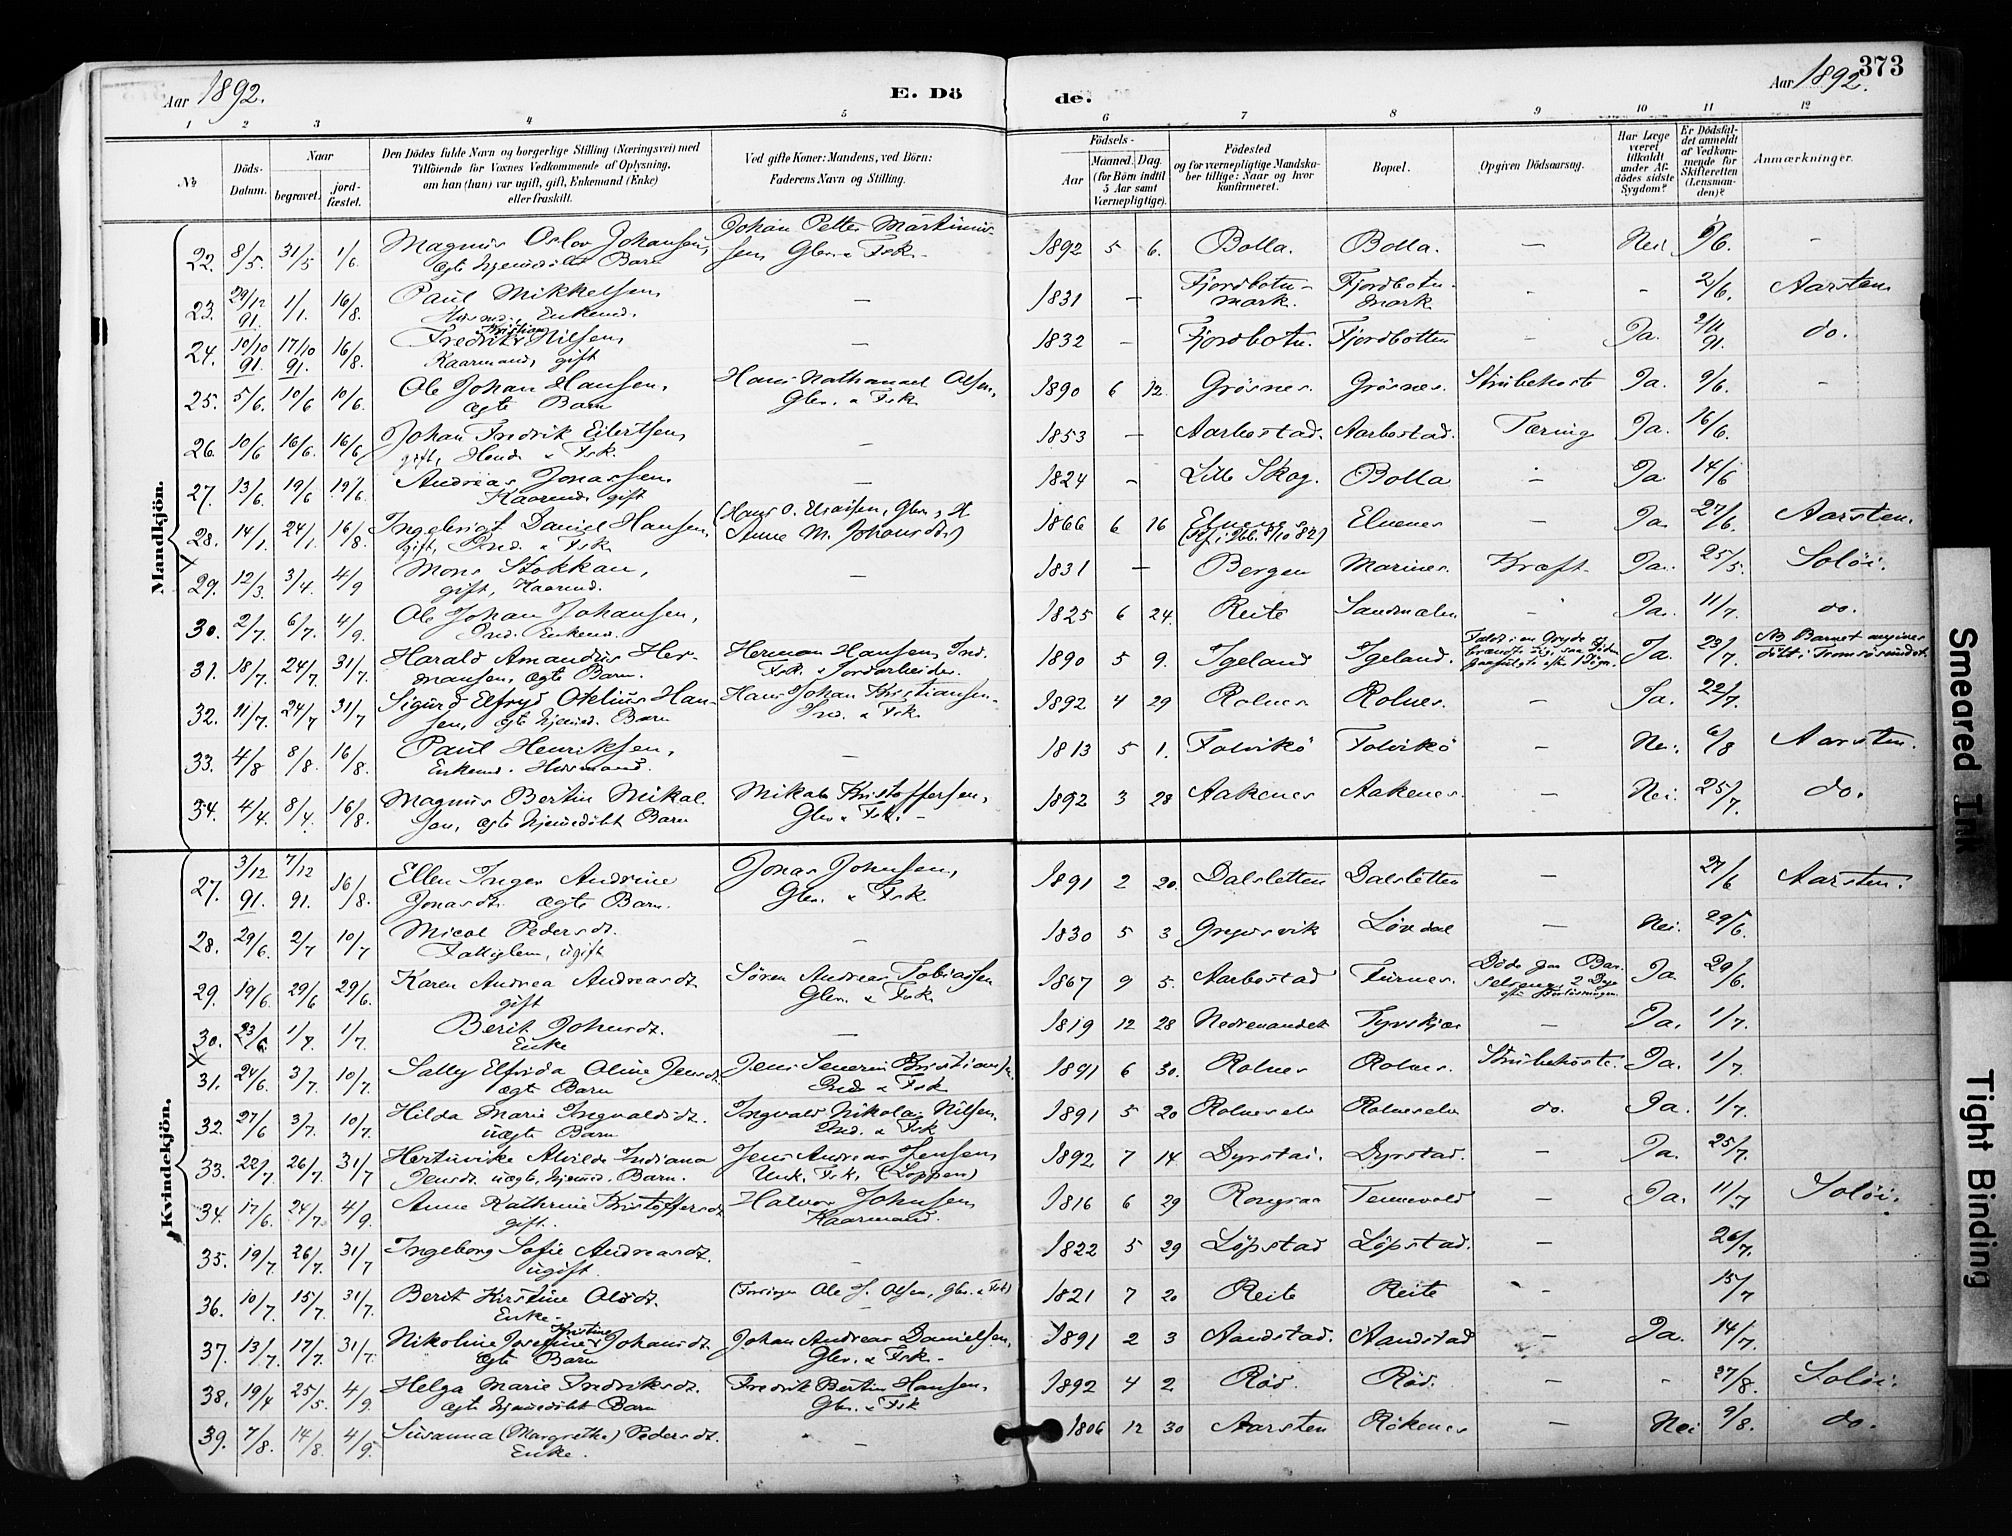 373
Aar 1892.
E. Dö
de.
Aar 1892.
1 2 3 4 5 6 7 8 9 10 11 12
№
Döds-Datum.
Naar
begravet.
jord-fæstet.
Den Dödes fulde Navn og borgerlige Stilling (Næringsvei) med
Tilföiende for Voxnes Vedkommende af Oplysning,
om han (hun) var ugift, gift, Enkemand (Enke)
eller fraskilt.
Ved gifte Koner: Mandens, ved Börn:
Faderens Navn og Stilling.
Födsels-
Aar
Maaned. Dag.
(for Börn indtil
5 Aar samt
Værnepligtige).
Födested
og for værnepligtige Mandska-
ber tillige: Naar og hvor
konfirmeret.
Bopæl.
Opgiven Dödsaarsag.
Har Læge
været
tilkaldt
under Af-
dödes sidste
Sygdom?
Er Dödsfal-
det anmeldt
af Vedkom-
mende for
Skifteretten
(Lensman-
den)?
Anmærkninger.
Mandkjön.
22. 8/5. 31/5 1/6. Magnus Oslov Johansen, ægte hjemmedöbt Barn Johan Petter Martinussen, Gbr. & Fsk. 1892 5 6. Bolla. Bolla. — Nei 9/6. -
23. 29/12 91. 1/1. 16/8. Paul Mikkelsen, Husmd., Enkemd. — 1831 — Fjordbotn-mark. Fjordbotn-mark - - 2/6. Aarsten
24. 10/10 91. 17/10 91. 16/8. Fredrik Kristian Nilsen, Kaarmand, gift — 1832 — Fjordbotn. Fjordbotten - Ja. 2/11 91. do.
25. 5/6. 10/6 10/6. Ole Johan Hansen, ægte Barn Hans Nathanael Olsen, Gbr. & Fsk. 1890 6 12. Grösnes. Grösnes. Strubehoste Ja. 9/6. -
26. 10/6 16/6. 16/6 Johan Fredrik Eilertsen, gift, Fsk. — 1853 — Aarbostad. Aarbostad. Tæring Ja. 16/6.
27. 13/6. 19/6 19/6. Andreas Jonassen, Kaarmd. gift 1824 - Lille Skog. Bolla - Ja 14/6
28. 14/1. 24/1. 16/8. Ingebrigt Daniel Hansen, gift, Ind. & Fsk. Anne M. Johansdtr) 1866 6 16 Elvenes Elvenes - Ja. 27/6. Aarsten.
29. 12/3. 3/4. 4/9 Mons Stokkan, gift, Kaarmd. — 1831 — Bergen Marines. Kræft. Ja. 25/5. Solöi.
30. 2/7. 6/7. 4/9. Ole Johan Johansen, Ind. Enkemd. 1825 6 24. Reite Sandmalen - Ja. 11/7. do.
31. 18/7. 24/7. 31/7. Harald Amandus Hermansen, ægte Barn. Herman Hansen, Ind. Fsk. & Jordarbeider. 1890 5 9. Igeland Igeland. Faldt i en Gryde Ja 23/7. NB Barnet angives döbt i Tromsösundet.
32. 11/7. 24/7 31/7 Sigurd Elfryd Otelius Hansen, ægte hjemmed. Barn Hans Johan Kristiansen. Ind. & Fsk. 1892 4 29 Rolnes Rolnes. — Ja. 22/7.
33. 4/8 8/8. 16/8. Paul Henriksen, Enkemd. Husmand. — 1813 5 1. Folvikö Folvikö - Nei. 6/8 Aarsten.
34. 4/4. 8/4. 16/8. Magnus Bertin Mikalsen, ægte hjemmedöbt Barn Mikal Kristoffersen, Gbr. & Fsk. - 1892 3 28 Aakenes Aakenes. — Nei. 25/7. do.
Kvindekjön.
27. 3/12 91. 7/12 91. 16/8. Ellen Inger Andrine Jonasdt. ægte Barn. Jonas Johnsen, Gbr. & Fsk. 1891 2 20. Dalsletten Dalsletten — 27/6 Aarsten.
28. 29/6. 2/7 10/7 Micol Pedersdt. Fattiglem, ugift — 1830 5 3 Gregusvik Lövdal — Nei. 29/6.
29. 19/6. 29/6 29/6. Karen Andrea Andreasdt. gift Sören Andreas Tobiassen Gbr. & Fsk. 1867 9 5. Aarbostad Furnes. Döde paa Barselseng 2 Dage efter Forlösningen. Ja. 29/6.
30. 23/6. 1/7. 1/7. Berit Johnsdt. Enke — 1819 12 28 Nedrevandet Tyvskjær — Ja. 1/7.
31. 24/6. 3/7. 10/7 Sally Elfrida Oline Jensdt. ægt Barn Jens Severin Kristiansen. Ind. & Fsk 1891 6 30. Rolnes Rolnes. Strubehoste. Ja. 1/7.
32. 27/6 3/7. 10/7. Hilda Marie Ingvaldsdt. uægte Barn Ingvald Nikolai Nilsen, Ind. & Fsk 1891 5 20 Rolneselv Rolneselv do. Ja. 1/7.
33. 22/7 26/7. 31/7 Alvilde Indiana Jensdt. uægte, hjemmed. Barn. Jens Andreas Jensen, Unk. Fsk. (Loppen) 1892 7 14. Dyrstad. Dyrstad. - Ja. 25/7.
34. 17/6. 24/7. 4/9. Anne Kathrine Kristoffersdt. gift. Halvor Johnsen, Kaarmand. 1816 6 29 Rongsaa Tennevold — Ja. 11/7 Solöi.
35. 19/7. 26/7. 31/7 Ingeborg Sofie Andreasdt. ugift. — 1822 5 29 Löpstad Löpstad. — 26/7.
36. 10/7. 15/7. 31/7. Berit Kirstine Olsdt. Enke. (Forsörger Ole J. Olsen, Gbr. & Fsk) 1821 7 20 Reite Reite - 15/7
37. 13/7. 17/7. 31/7. Nikoline Josefine Kristine Johansdt. ægte Barn Johan Andreas Danielsen. Gbr. & Fsk. - 1891 2 3 Aandstad. Aandstad — Ja. 14/7.
38. 19/4 25/5. 4/9. Helga Marie Fredriksdt. ægte hjemmedöbt Barn Fredrik Bertin Hansen. Gbr. & Fsk 1892 4 2. Röd. Röd. — - 27/8. Solöi.
39. 7/8. 14/8. 4/9. Susanna (Margrethe) Pedersdt. Enke. — 1806 12 30 Aarsten Rökenes — Nei 9/8. do.
Smeared Ink
Tight Binding